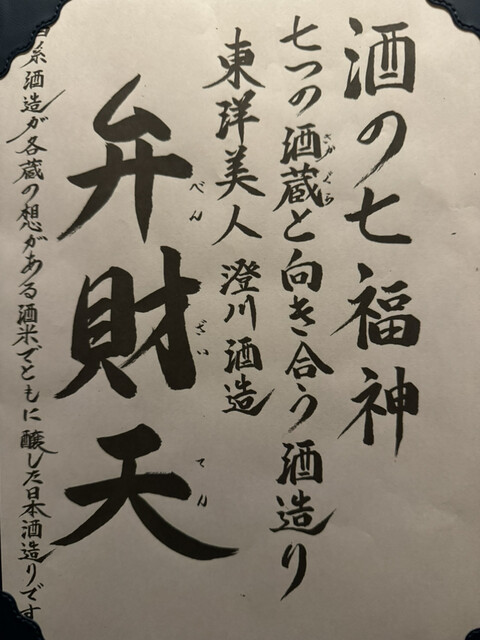 酒の七福神
七つの酒蔵と向き合う酒造り
さかぐら
東洋美人 澄川酒造
弁財天
べんざいてん
白糸酒造が各蔵の想がある酒米でともに醸した日本酒造りです